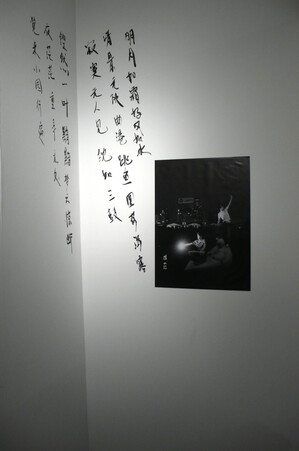 明月如霜好风如水
清景无限曲港跳鱼圆荷泻露
寂寞无人见 紞如三鼓
铿然一叶黯黯梦云惊断
夜茫茫重寻无处
觉来小园行遍